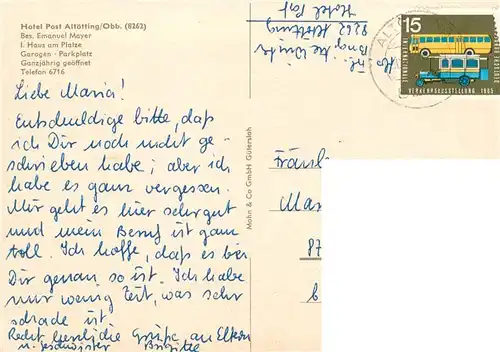 Hotel Post Altötting/Obb. (8262)
Bes. Emanuel Mayer
I. Haus am Platze
Garagen · Parkplatz
Ganzjährig geöffnet
Telefon 6716
Liebe Maria!
Entschuldige bitte, daß
ich Dir noch nicht ge-
schrieben habe; aber ich
habe es ganz vergessen.
Mir geht es hier sehr gut
und mein Beruf ist ganz
toll. Ich hoffe, daß es bei
Dir genau so ist. Ich habe
nur wenig Zeit, was sehr
schade ist.
Recht herzliche Grüße an Eltern
u. Geschwister Brigitte
Mohn & Co GmbH Gütersloh
8262 Altötting
Hotel Post
15
VERKEHRSAUSSTELLUNG 1965
Fräul
Mar
87